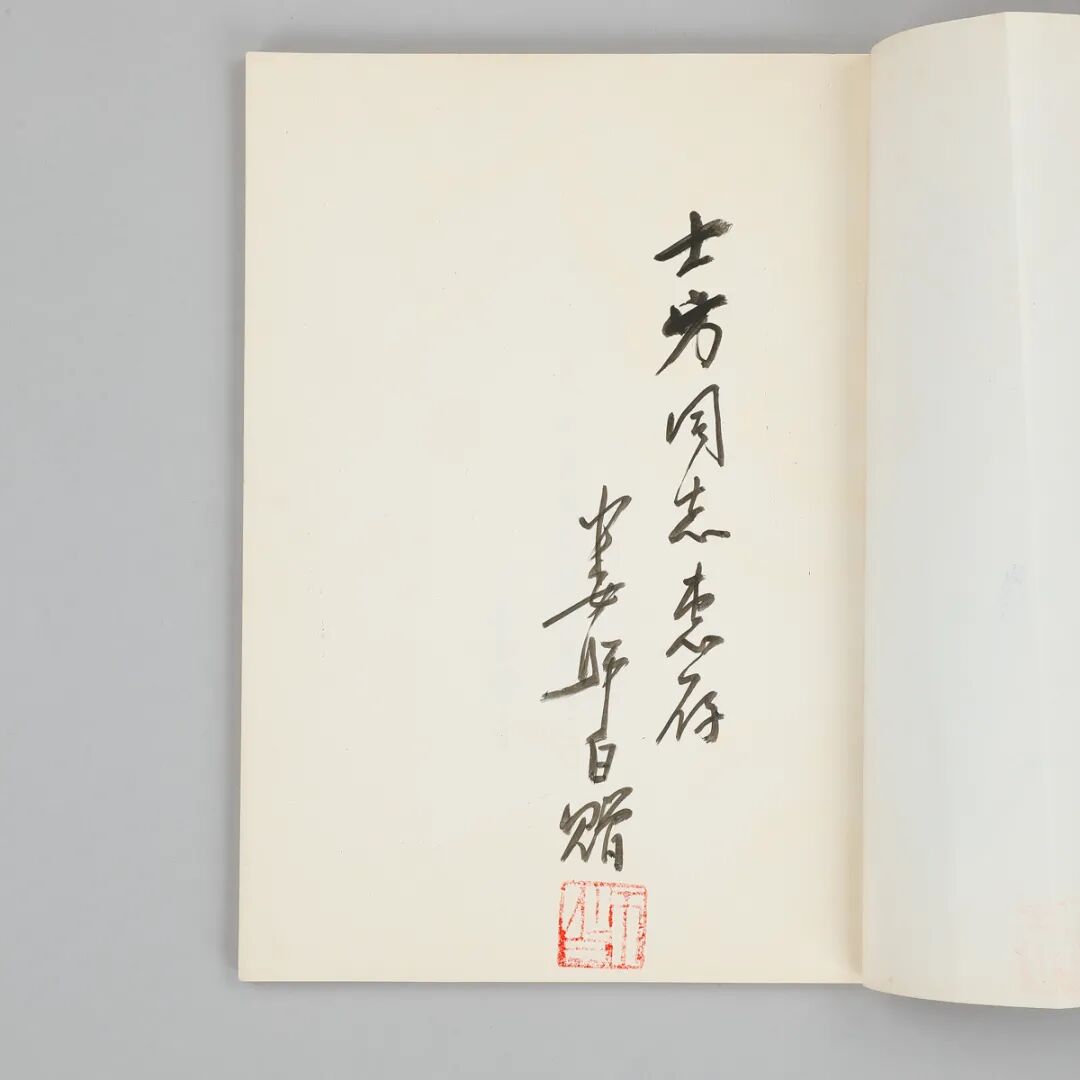 士方同志惠存
娄师白赠